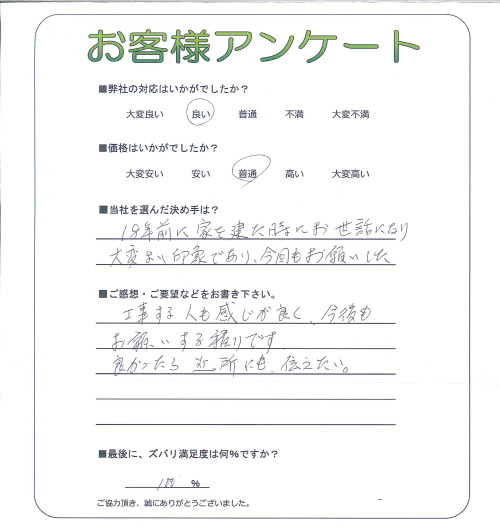 お客様アンケート
■弊社の対応はいかがでしたか？
大変良い 良い 普通 不満 大変不満
■価格はいかがでしたか？
大変安い 安い 普通 高い 大変高い
■当社を選んだ決め手は？
18年前に家を建た時にお世話になり
大変よい印象であり、今回もお願いした
■ご感想・ご要望などをお書き下さい。
工事する人も感じが良く、今後も
お願いする積りです
良かったら近所にも、伝えたい。
■最後に、ズバリ満足度は何％ですか？
100 ％
ご協力頂き、誠にありがとうございました。